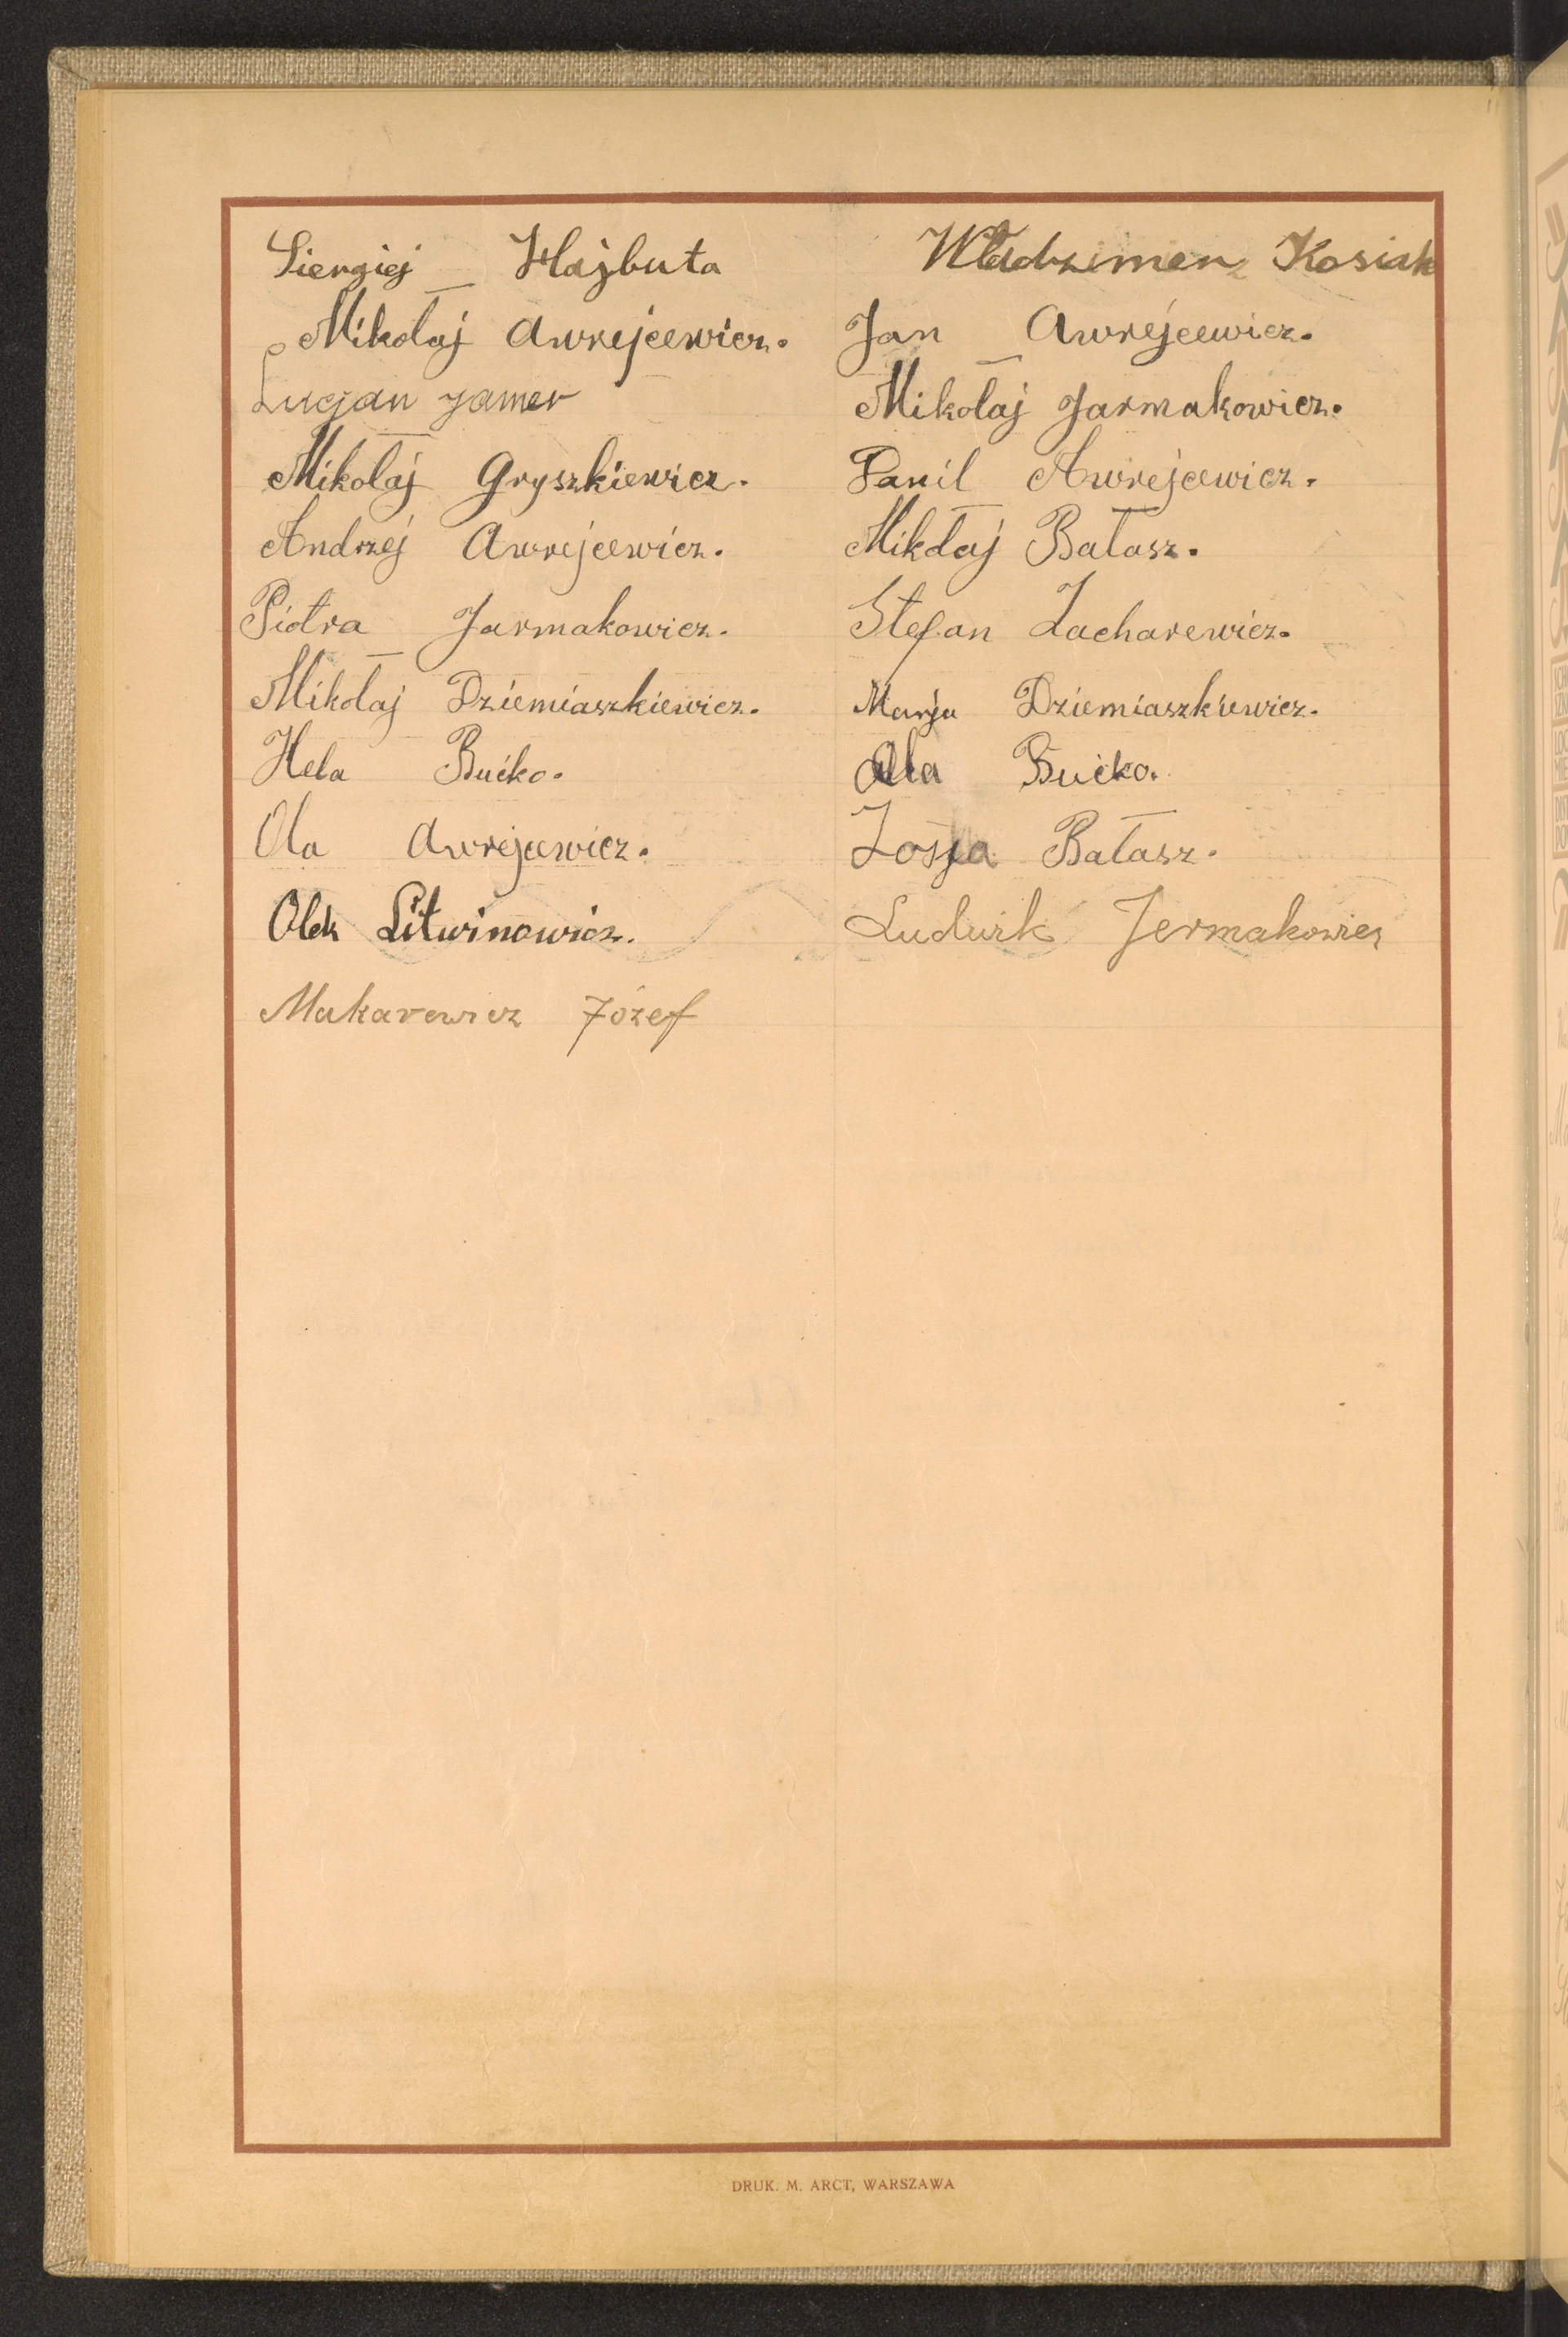 Siergiej Hajbuta
Mikołaj Awrejcewicz.
Lucjan Jamer
Mikołaj Gryszkiewicz.
Andrzej Awrejcewicz.
Piotra Jarmakowicz.
Mikołaj Dziemiaszkiewicz.
Hela Bućko.
Ola Awrejcewicz.
Olek Litwinowicz.
Makarewicz Józef
Władzimierz Kosiak
Jan Awrejcewicz.
Mikołaj Jarmakowicz.
Danil Awrejcewicz.
Mikłaj Bałasz.
Stefan Zacharewicz.
Marja Dziemiaszkiewicz.
Ala Bućko.
Zosja Bałasz.
Ludwik Jermakowicz
DRUK. M. ARCT, WARSZAWA